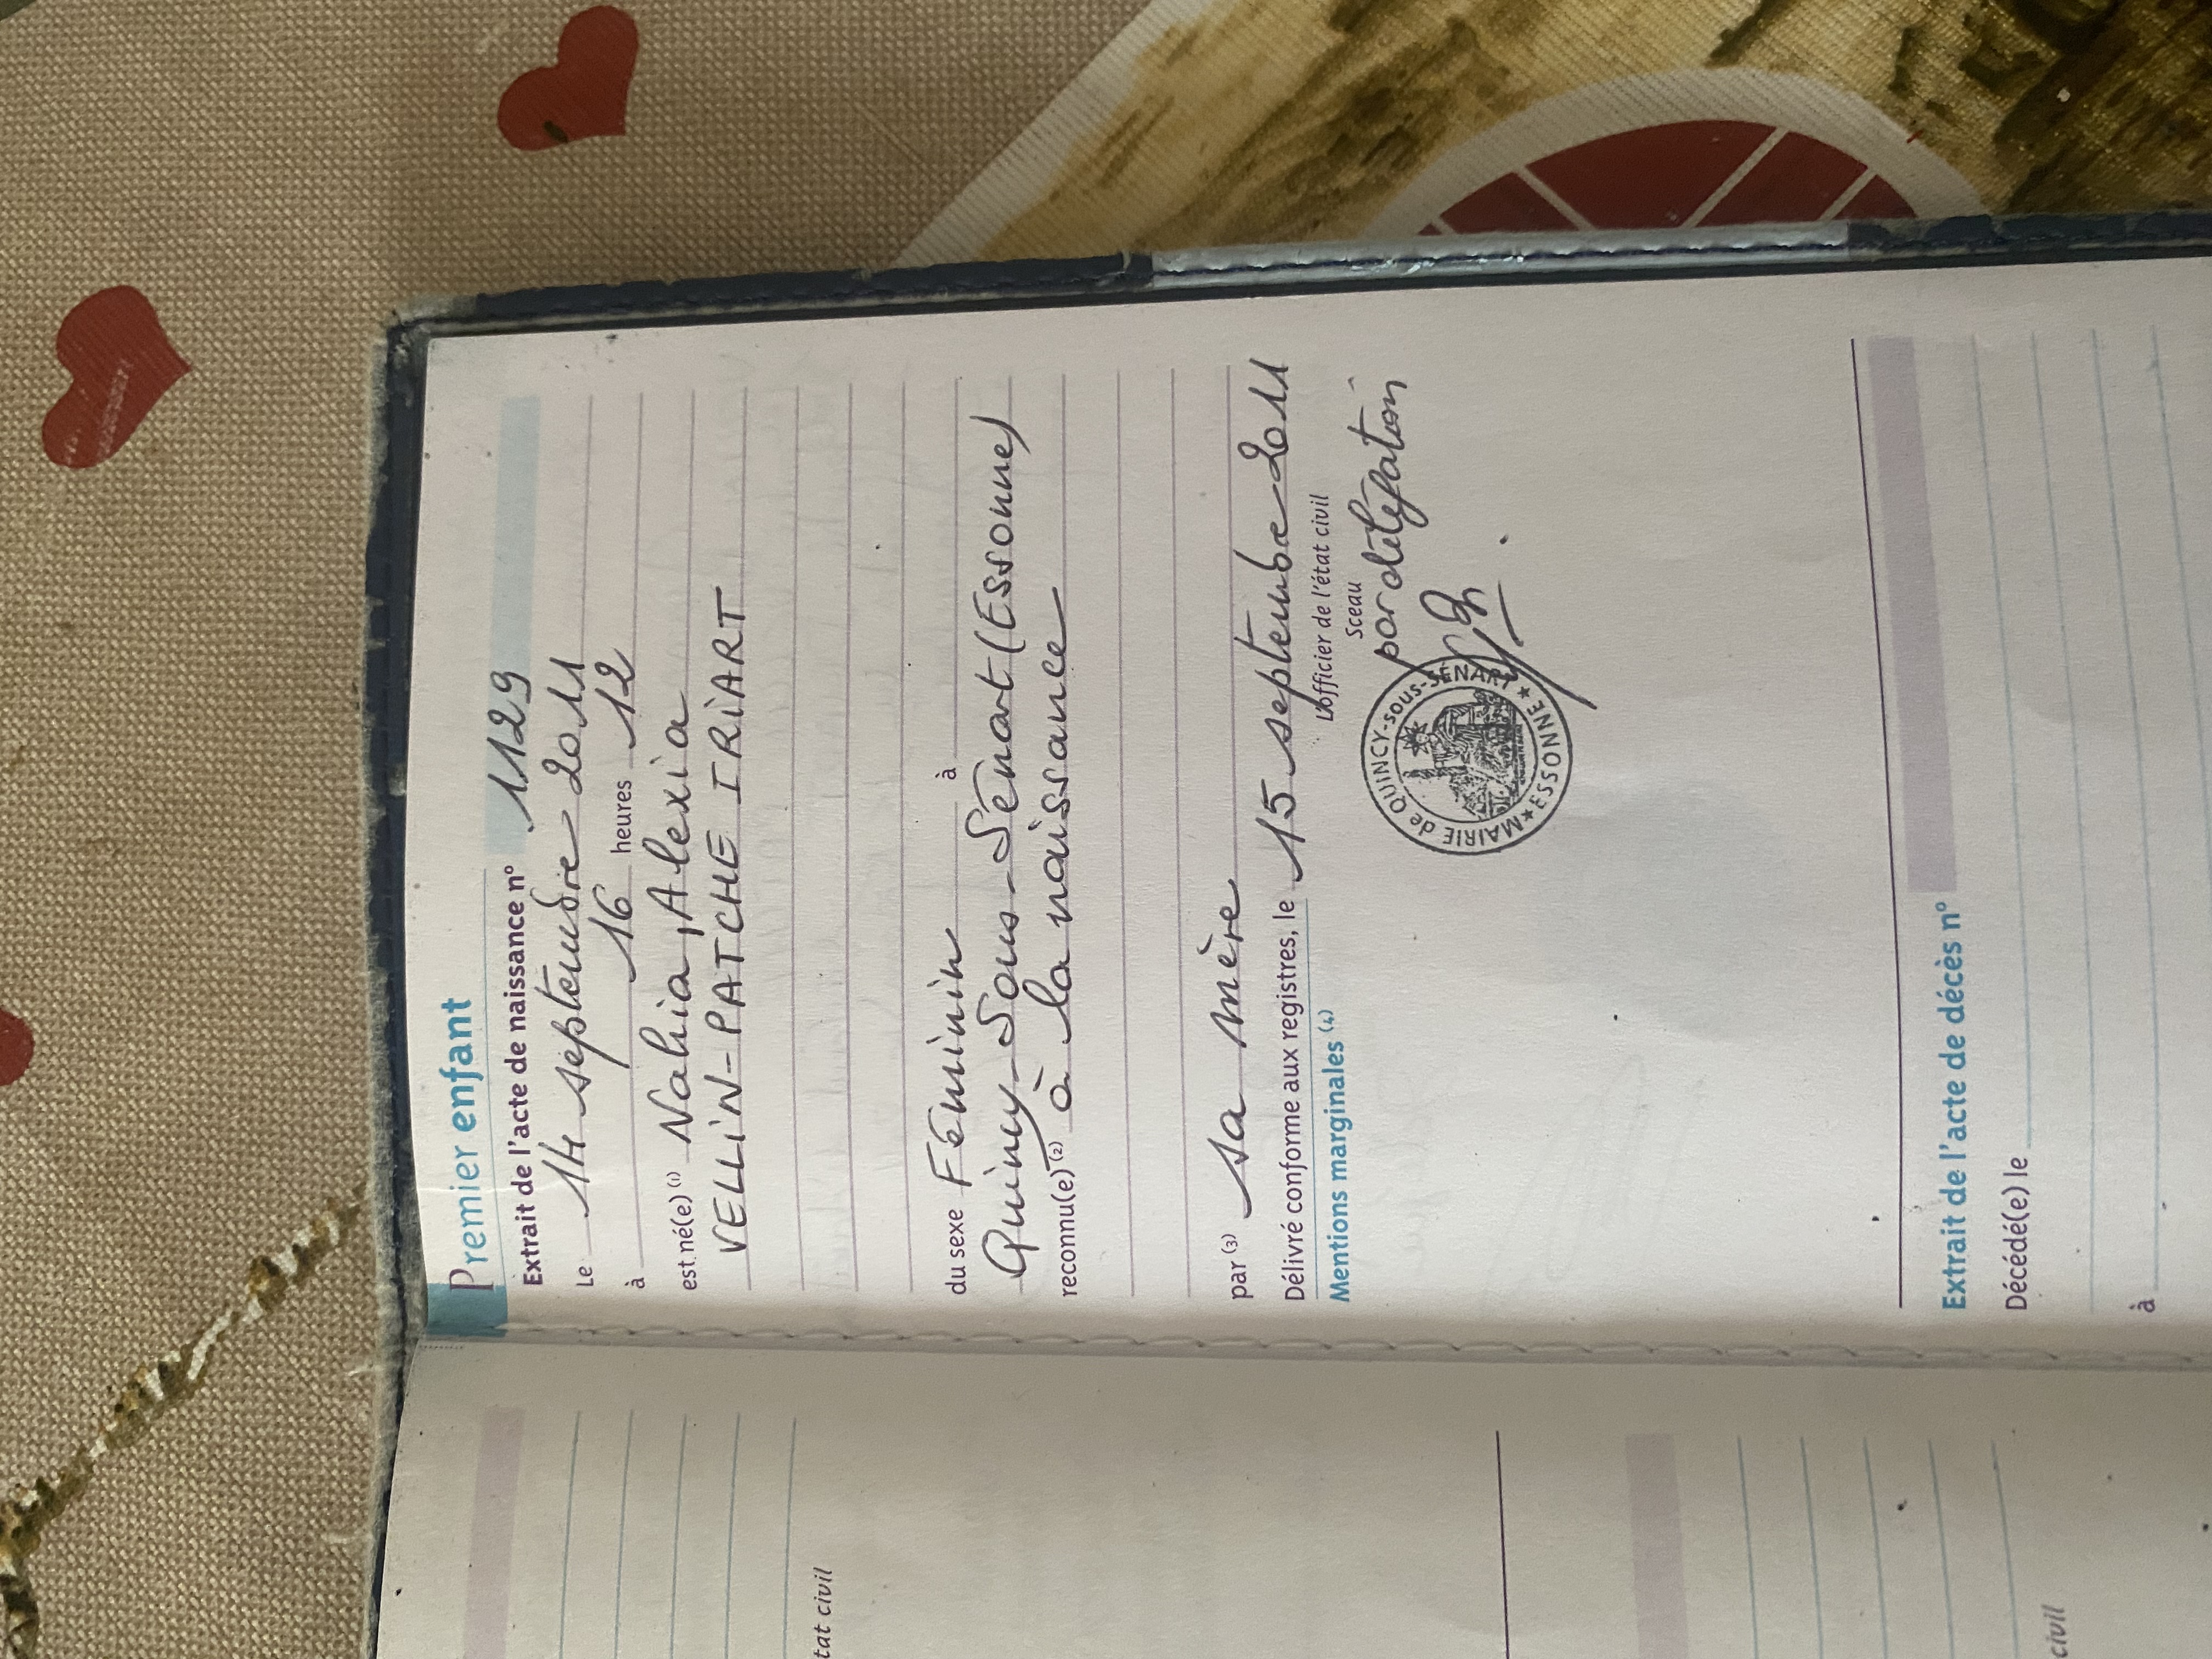 Premier enfant
Extrait de l'acte de naissance n° 1129
Le 14 septembre 2011
à 16 heures 12
est né(e) (1) Nahia, Alexia
VELLIN-PATCHE IRIART
du sexe Féminin à
Quincy-Sous-Sénart (Essonne)
reconnu(e) (2) à la naissance
par (3) sa mère
Délivré conforme aux registres, le 15 septembre 2011
Mentions marginales (4)
L'officier de l'état civil
Sceau
par délégation
MAIRIE de QUINCY-sous-SÉNART
★ ESSONNE ★
Extrait de l'acte de décès n°
Décédé(e) le
à
tat civil
civil